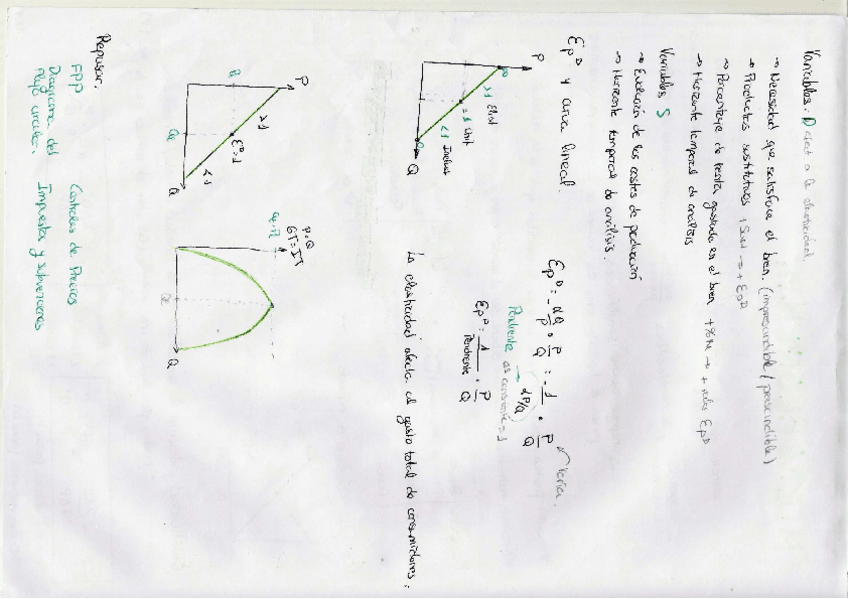 Variables. D afect a la elasticidad.
→ Necesidad que satisface el bien. (imprescindible / prescindible)
→ Productos sustitutivos + Sust → + EpD
→ Porcentaje de renta gastada en el bien
→ Horizonte temporal de análisis
Variables S
→ Evolución de los costes de producción
→ Horizonte temporal de análisis.
EpD y curva lineal.
EpD = - dQ/dP · P/Q = - 1/(dP/dQ) · P/Q
Varía.
Pendiente es constante
EpD = 1/Pendiente · P/Q
P
>1 Elást
=1 Unit
<1 Inelást
Q
La elasticidad afecta al gasto total de consumidores:
P
>1
E=1
<1
Q
P·Q
GT=IT
Q
Repasar.
FPP
Diagrama del
flujo circular.
Controles de Precios
Impuestos y subvenciones